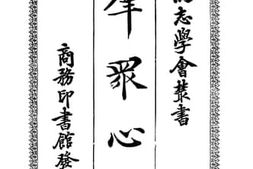 志學會叢書
羣眾心
商務印書館發